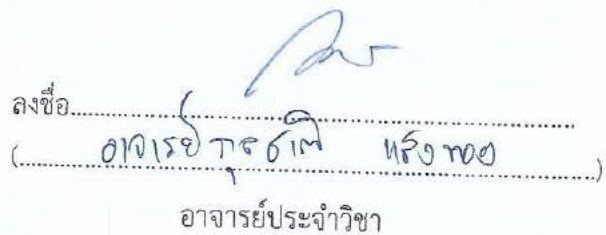 ลงชื่อ........................................
(อาจารย์ แสงทอง)
อาจารย์ประจำวิชา